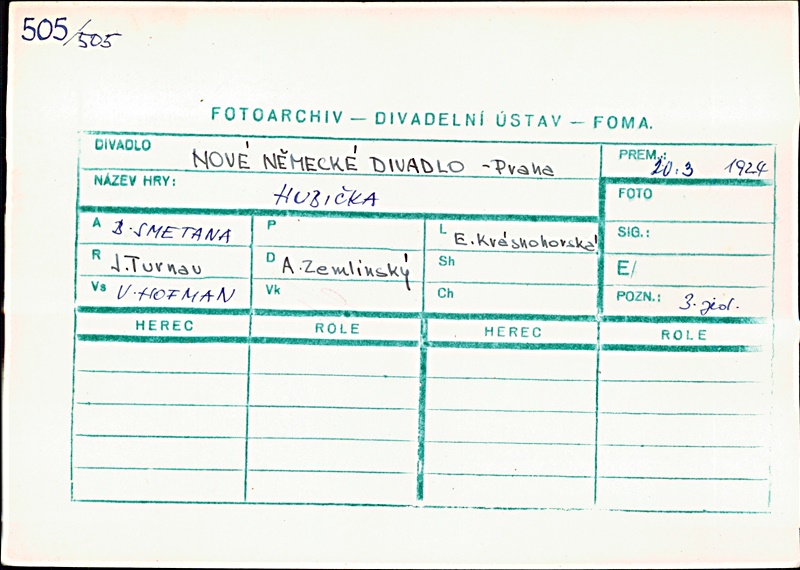 505/505
FOTOARCHIV — DIVADELNÍ ÚSTAV — FOMA.
DIVADLO NOVÉ NĚMECKÉ DIVADLO - Praha
PREM.: 20.3 1924
NÁZEV HRY: HUBIČKA
FOTO
A B. SMETANA
P
L E. Krásnohorská
SIG.:
R J. Turnau
D A. Zemlinský
Sh
E/
Vs V. HOFMAN
Vk
Ch
POZN.: 3. jed.
HEREC ROLE HEREC ROLE